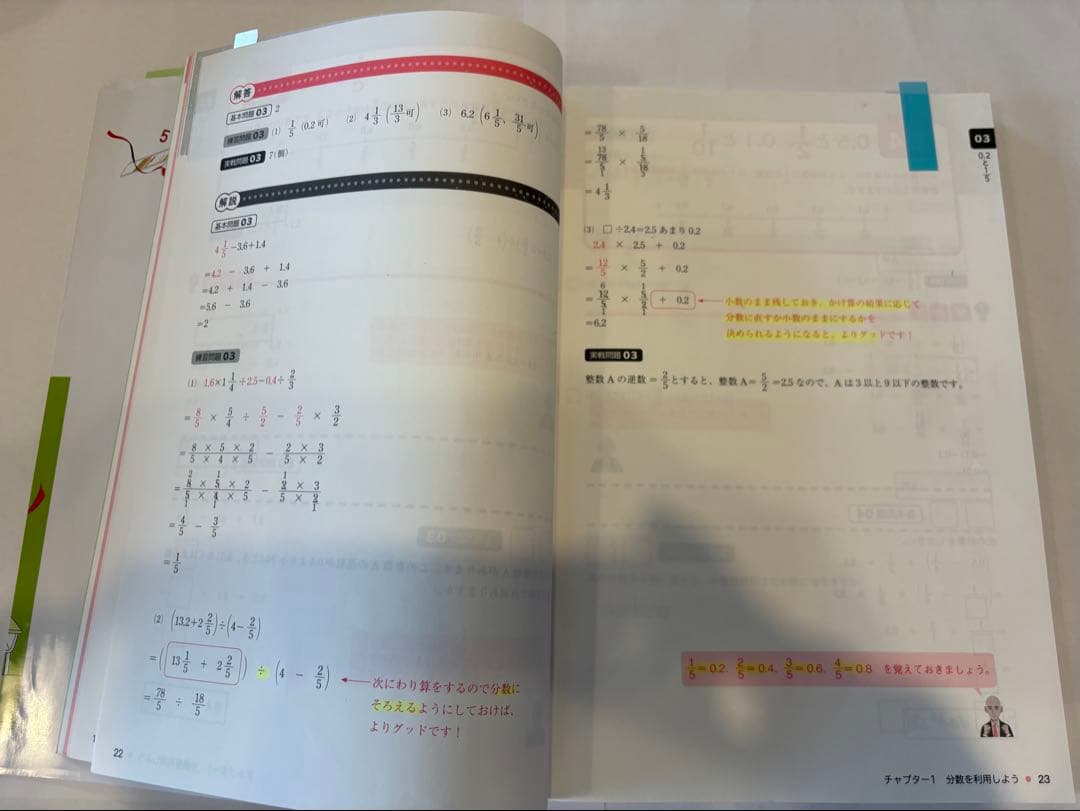 5
解答
基本問題 03 2
練習問題 03 (1) 1/5 (0.2可) (2) 4 1/3 (13/3 可) (3) 6.2 (6 1/5、31/5 可)
実戦問題 03 7(個)
解説
基本問題 03
4 1/5 −3.6+1.4
=4.2 − 3.6 + 1.4
=4.2 + 1.4 − 3.6
=5.6 − 3.6
=2
練習問題 03
(1) 1.6×1 1/4 ÷2.5−0.4÷ 2/3
= 8/5 × 5/4 ÷ 5/2 − 2/5 × 3/2
= 8 × 5 × 2 / 5 × 4 × 5 − 2 × 3 / 5 × 2
= 2 1 8 × 5 × 2 / 5 × 4 × 5 1 1 − 1 2 × 3 / 5 × 2 1
= 4/5 − 3/5
= 1/5
(2) (13.2+2 2/5)÷(4− 2/5)
=((13 1/5 + 2 2/5)) ÷ (4 − 2/5)
次にわり算をするので分数に
そろえるようにしておけば、
よりグッドです！
= 78/5 ÷ 18/5
22
= 78/5 × 5/18
= 13 78/5 1 × 1 5/18 3
=4 1/3
(3) □÷2.4=2.5 あまり 0.2
2.4 × 2.5 + 0.2
= 12/5 × 5/2 + 0.2
= 6 12/5 1 × 1 5/2 1 + 0.2
小数のまま残しておき、かけ算の結果に応じて
分数に直すか小数のままにするかを
決められるようになると、よりグッドです！
=6.2
実戦問題 03
整数 A の逆数 = 2/5 とすると、整数 A= 5/2 =2.5 なので、A は 3 以上 9 以下の整数です。
03
0.2と1/5
1/5=0.2、2/5=0.4、3/5=0.6、4/5=0.8 を覚えておきましょう。
チャプター1 分数を利用しよう ● 23